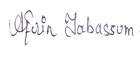 Afrin Tabassum